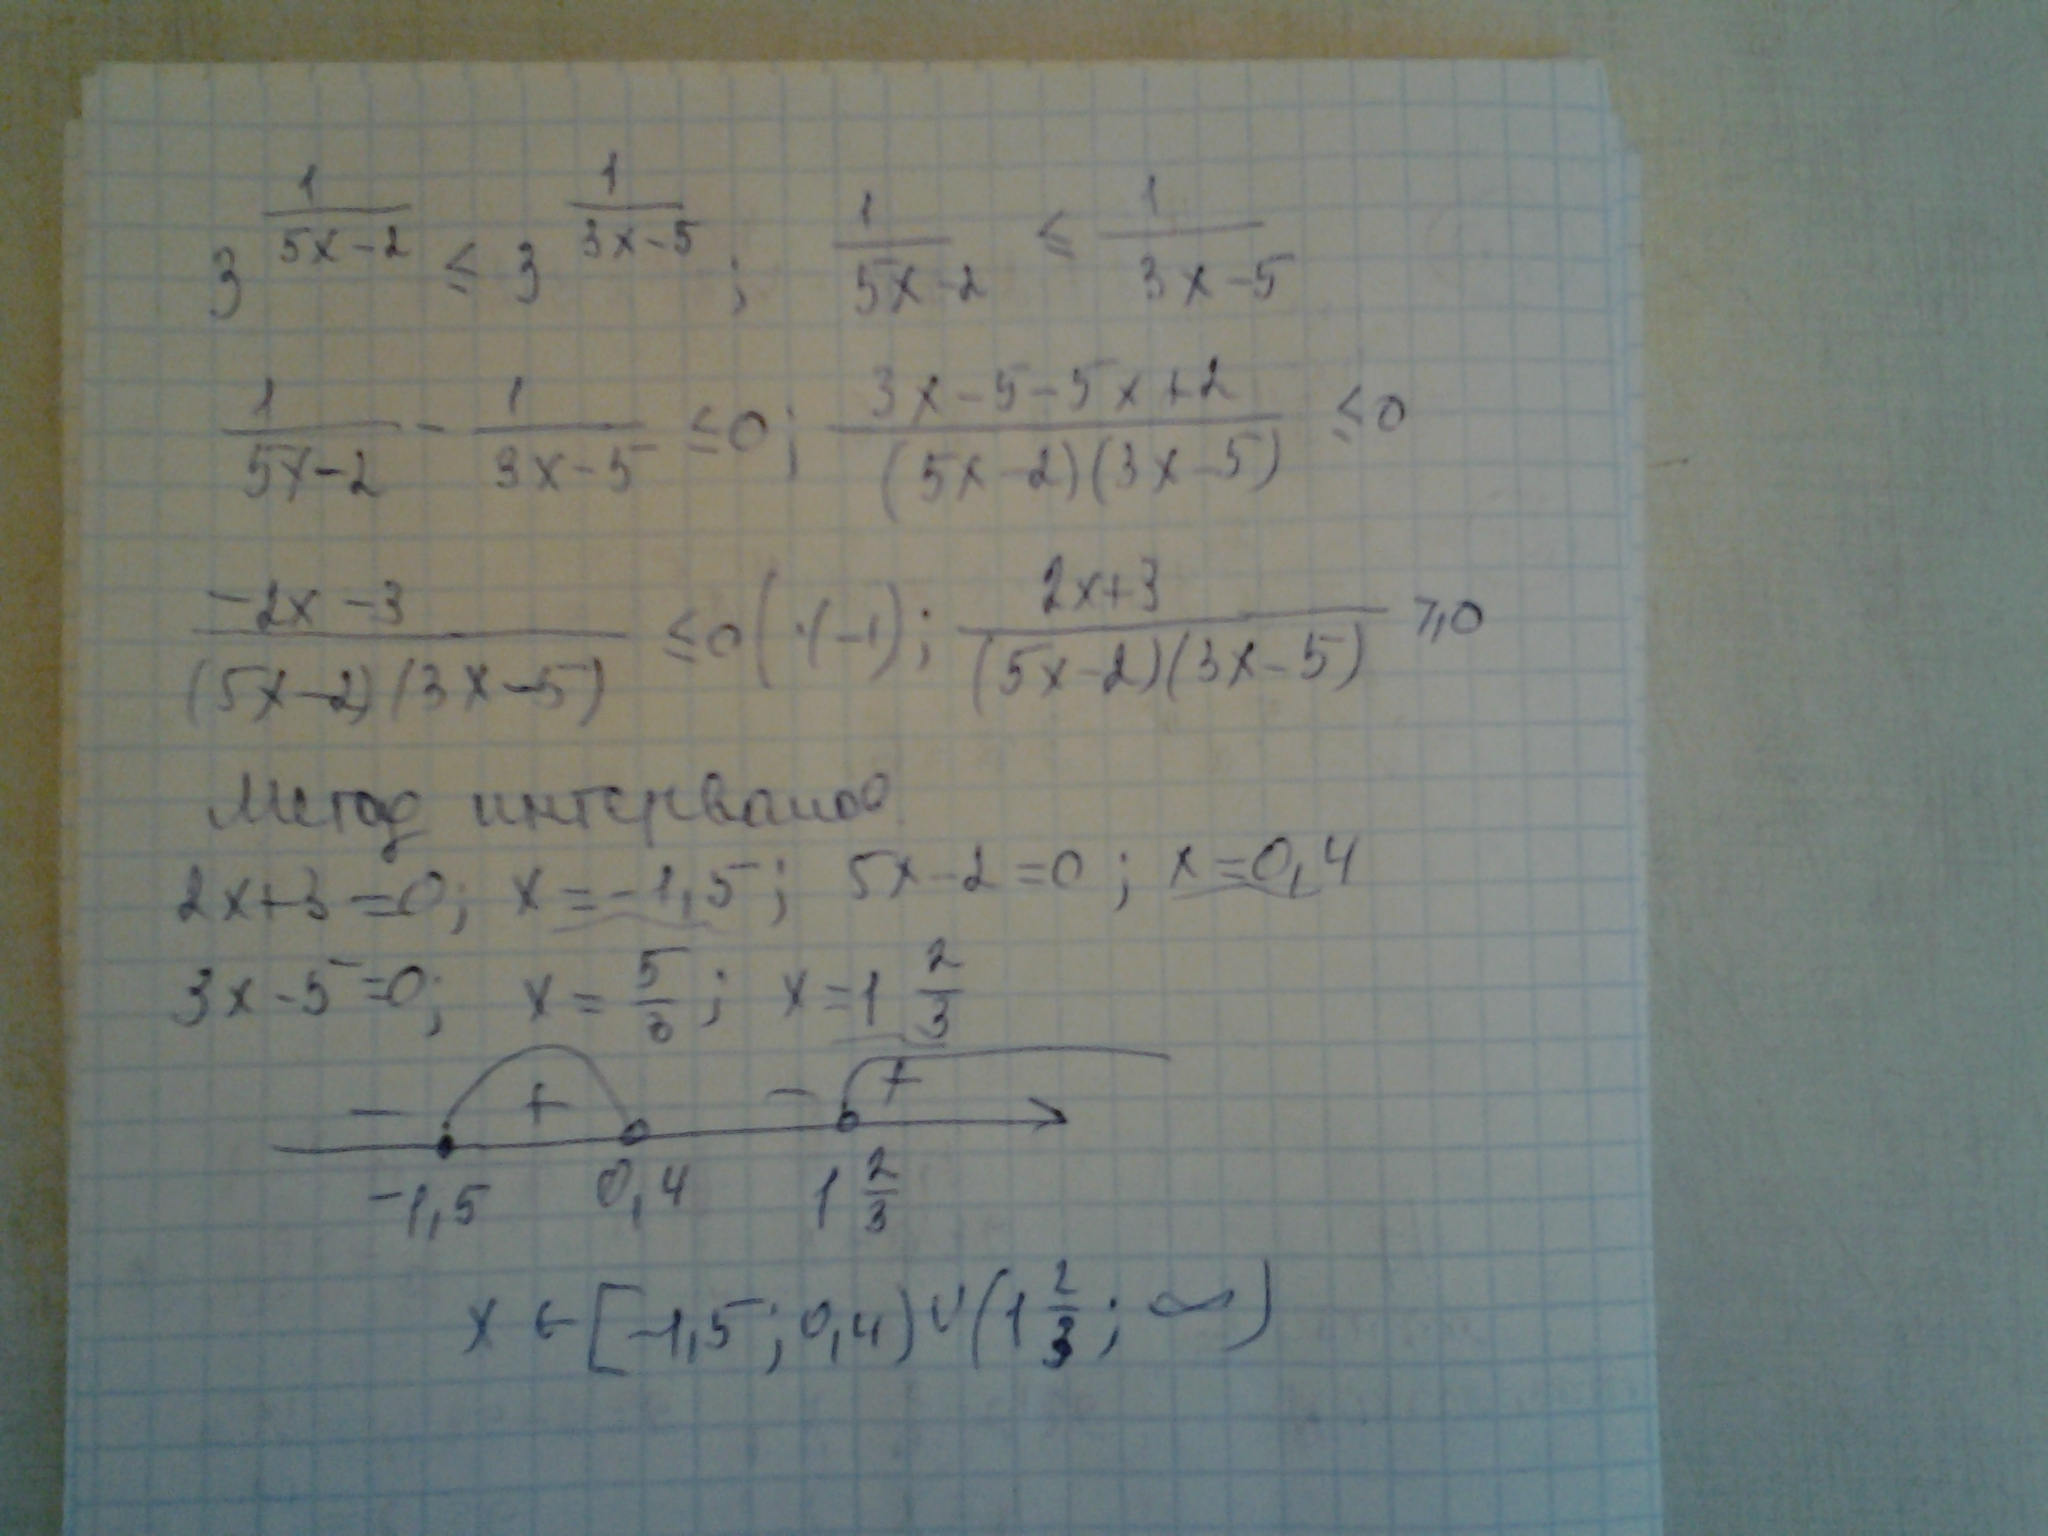 3^(1/(5x-2)) ≤ 3^(1/(3x-5)); 1/(5x-2) ≤ 1/(3x-5)
1/(5x-2) - 1/(3x-5) ≤ 0; (3x-5-5x+2)/((5x-2)(3x-5)) ≤ 0
(-2x-3)/((5x-2)(3x-5)) ≤ 0 (·(-1); (2x+3)/((5x-2)(3x-5)) ≥ 0
Метод интервалов
2x+3=0; x=-1,5; 5x-2=0; x=0,4
3x-5=0; x=5/3; x=1 2/3
- + - +
-1,5 0,4 1 2/3
x ∈ [-1,5; 0,4) ∪ (1 2/3; ∞)